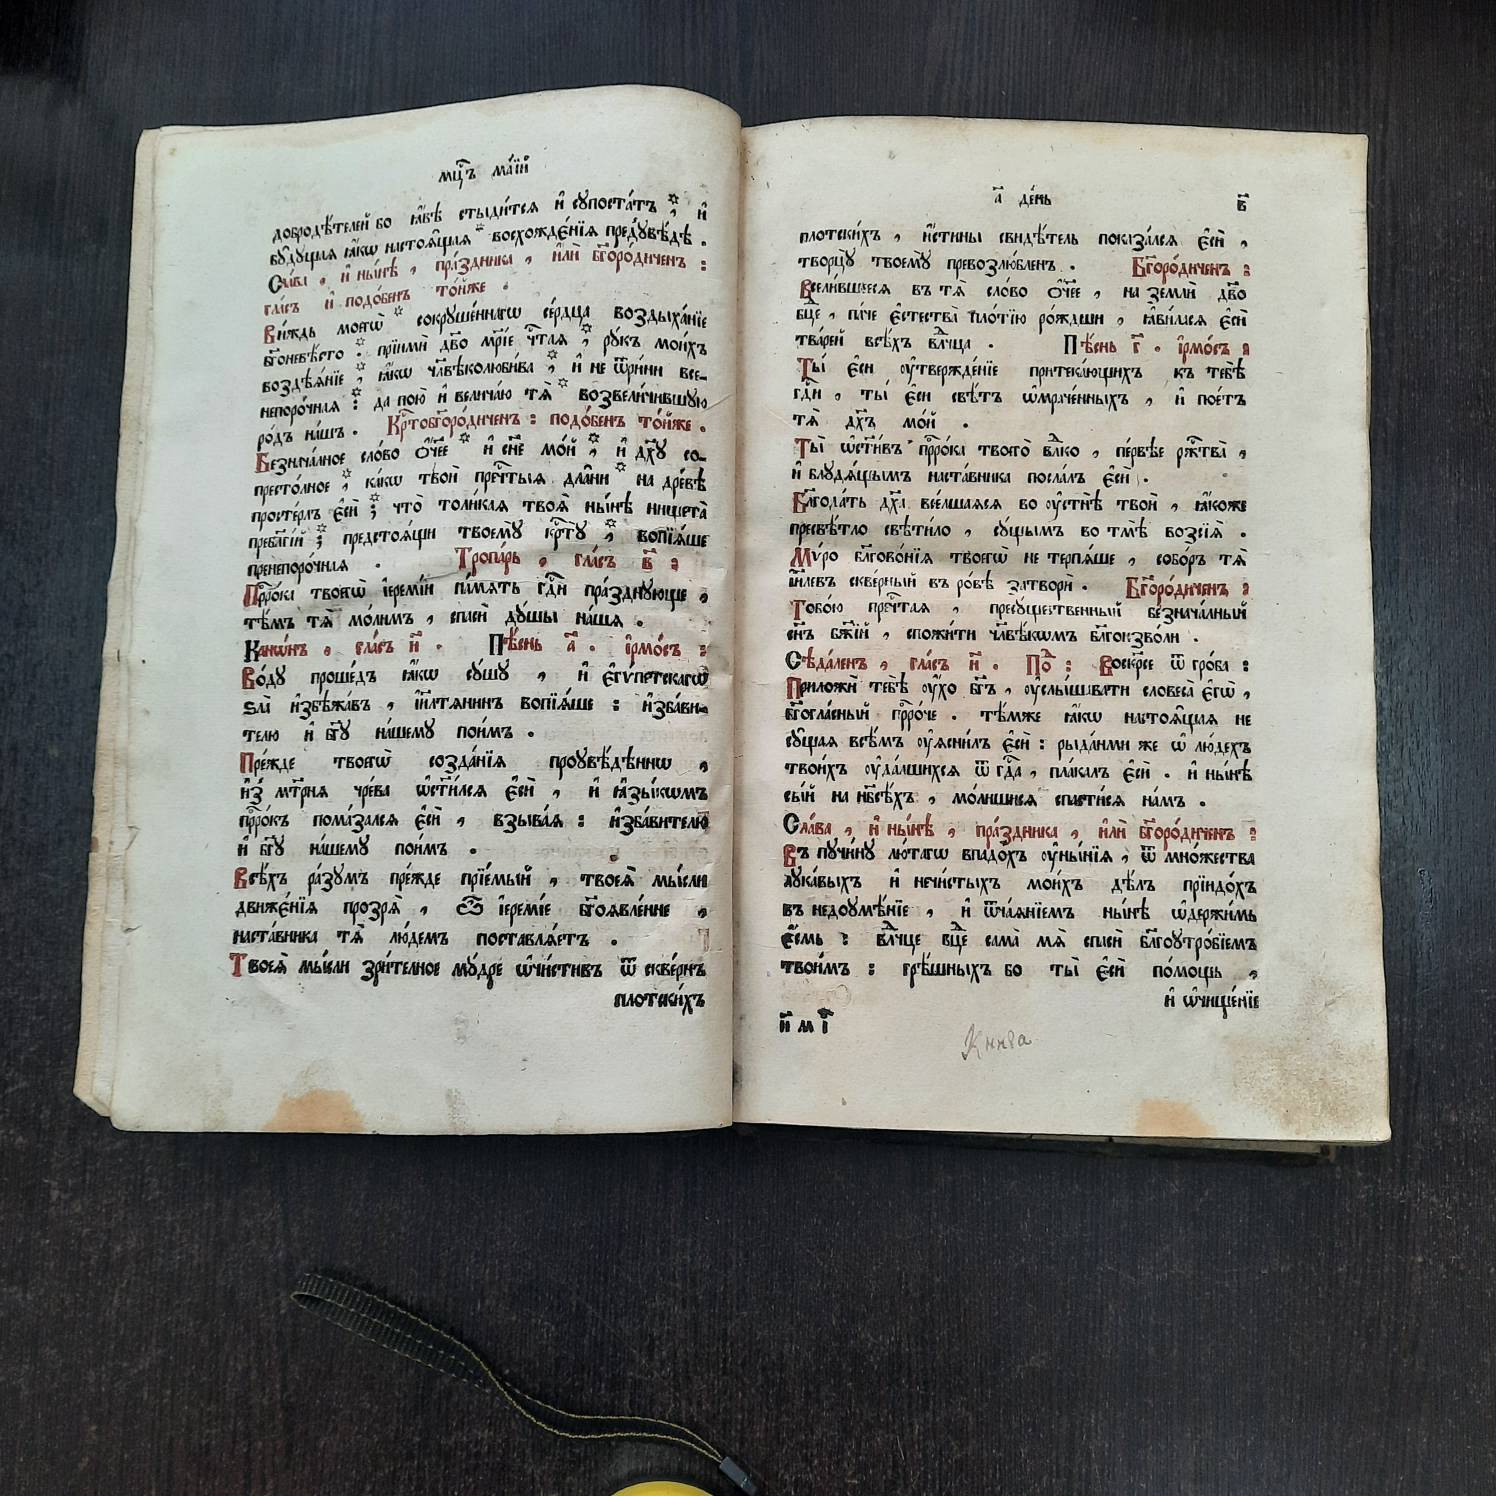 мц҃ъ ма́їй
добродѣ́телей бо ꙗ҆́вѣ стыди́тсѧ и҆ сꙋпоста́тъ, и҆
бꙋ̑дꙋщаѧ ꙗ҆́кѡ настоѧ̑щаѧ восхожде́нїѧ предꙋвѣ́дѣ.
Сла́ва, и҆ ны́нѣ, пра́здника, и҆лѝ бг҃оро́диченъ:
гла́съ и҆ подо́бенъ то́йже.
Ви́ждь моегѡ̀ сокрꙋше́ннагѡ се́рдца воздыха́нїе
бг҃оневѣ́сто: прїимѝ дв҃о мр҃і́е чⷭ҇таѧ, рꙋ́къ мои́хъ
воздѣ́ѧнїе, ꙗ҆́кѡ чл҃вѣколюби́ва, и҆ не ѿри́ни все-
непоро́чнаѧ: да пою̀ и҆ велича́ю тѧ̀ возвели́чившꙋю
ро́дъ на́шъ. Крⷭ҇тобг҃оро́диченъ: подо́бенъ то́йже.
Безнача́лное сло́во ѻ҆́ч҃ее и҆ сн҃е мо́й, и҆ дх҃ꙋ со-
престо́лное, ка́кѡ твоѝ пречⷭ҇тыѧ дла̑ни на дре́вѣ
просте́рлъ є҆сѝ; что̀ толи́каѧ твоѧ̀ ны́нѣ нищета̀
пребл҃гі́й; предстоѧ́щи твоемꙋ̀ крⷭ҇тꙋ̀, вопїѧ́ше
пренепоро́чнаѧ. Тропа́рь, гла́съ в҃:
Прⷪ҇ро́ка твоегѡ̀ і҆еремі́и па́мѧть гдⷭ҇и пра́зднꙋюще,
тѣ́мъ тѧ̀ мо́лимъ, спасѝ дꙋ́шы на́шѧ.
Канѡ́нъ, гла́съ и҃. Пѣ́снь а҃. і҆рмо́съ:
Во́дꙋ проше́дъ ꙗ҆́кѡ сꙋ́шꙋ, и҆ є҆гѵ́петскагѡ
ѕла̀ и҆збѣжа́въ, і҆и҃лтѧнинъ вопїѧ́ше: и҆зба́ви-
телю и҆ бг҃ꙋ на́шемꙋ пои́мъ.
Пре́жде твоегѡ̀ созда́нїѧ проꙋвѣ́дѣннѡ,
и҆з̾ мт҃рнѧ чре́ва ѡ҆ст҃и́лсѧ є҆сѝ, и҆ ꙗ҆зы́кѡмъ
прⷪ҇ро́къ пома́залсѧ є҆сѝ, взыва́ѧ: и҆зба́вителю
и҆ бг҃ꙋ на́шемꙋ пои́мъ.
Всѣ́хъ ра́зꙋмъ пре́жде прїе́мый, твоеѧ̀ мы́сли
движє́нїѧ прозрѧ̀, ѽ і҆еремі́е бг҃оѧвле́нне,
наста́вника тѧ̀ лю́демъ поставлѧ́етъ.
Твоеѧ̀ мы́сли зри́телное мꙋ́дре ѡ҆чи́стивъ ѿ скве́рнъ
плотски́хъ
а҃ де́нь
в҃
плотски́хъ, и҆́стины свидѣ́тель показа́лсѧ є҆сѝ,
творцꙋ̀ твоемꙋ̀ превозлю́бленъ. Бг҃оро́диченъ:
Всели́вшеесѧ въ тѧ̀ сло́во ѻ҆́ч҃ее, на землѝ дв҃о
бц҃е, па́че є҆стества̀ пло́тїю ро́ждши, ꙗ҆ви́ласѧ є҆сѝ
тва́рей всѣ́хъ влⷣчца. Пѣ́снь г҃. і҆рмо́съ:
Ты̀ є҆сѝ ᲂу҆твержде́нїе притека́ющихъ къ тебѣ̀
гдⷭ҇и, ты̀ є҆сѝ свѣ́тъ ѡ҆мраче́нныхъ, и҆ пое́тъ
тѧ̀ дх҃ъ мо́й.
Ты̀ ѡ҆ст҃и́въ прⷪ҇ро́ка твоего̀ влⷣко, пе́рвѣе рж҃тва̀,
и҆ блꙋдѧ́щымъ наста́вника посла́лъ є҆сѝ.
Бл҃года́ть дх҃а все́лшаѧсѧ во ᲂу҆стнѣ̀ твоѝ, ꙗ҆́коже
пресвѣ́тло свѣти́ло, сꙋ́щымъ во тмѣ̀ возсїѧ̀.
Мѵ́ро бл҃гово́нїѧ твоегѡ̀ не терпѧ́ше, собо́ръ тѧ̀
і҆и҃левъ скве́рный въ ро́вѣ затворѝ. Бг҃оро́диченъ:
Тобо́ю пречⷭ҇таѧ, пресꙋ́щественный безнача́лный
сн҃ъ бж҃ій, спожи́ти чл҃вѣ́кѡмъ бл҃гоизво́ли.
Сѣда́ленъ, гла́съ и҃. Поⷣ: Воскрⷭ҇е ѿ гро́ба:
Приложѝ тебѣ̀ ᲂу҆́хо бг҃ъ, ᲂу҆слы́шавати словеса̀ є҆гѡ̀,
бг҃огла́сный прⷪ҇ро́че. тѣ́мже ꙗ҆́кѡ настоѧ̑щаѧ не
сꙋ̑щаѧ всѣ́мъ ᲂу҆ѧсни́лъ є҆сѝ: рыда́ньми же ѡ҆ лю́дехъ
твои́хъ ᲂу҆да́лшихсѧ ѿ гдⷭ҇а, пла́калъ є҆сѝ. и҆ ны́нѣ
сы́й на нб҃сѣ́хъ, моли́шисѧ спасти́сѧ на́мъ.
Сла́ва, и҆ ны́нѣ, пра́здника, и҆лѝ бг҃оро́диченъ:
Въ пꙋчи́нꙋ лю́тагѡ впадо́хъ ᲂу҆ны́нїѧ, ѿ мно́жества
лꙋка́выхъ и҆ нечи́стыхъ мои́хъ дѣ́лъ прїидо́хъ
въ недоꙋмѣ́нїе, и҆ ѿча́ѧнїемъ ны́нѣ ѡ҆держи́мь
є҆́смь: влⷣчце бц҃е сама̀ мѧ̀ спасѝ бл҃гоꙋтро́бїемъ
твои́мъ: грѣ́шныхъ бо ты̀ є҆сѝ по́мощь,
и҆ ѡ҆чище́нїе
Книга